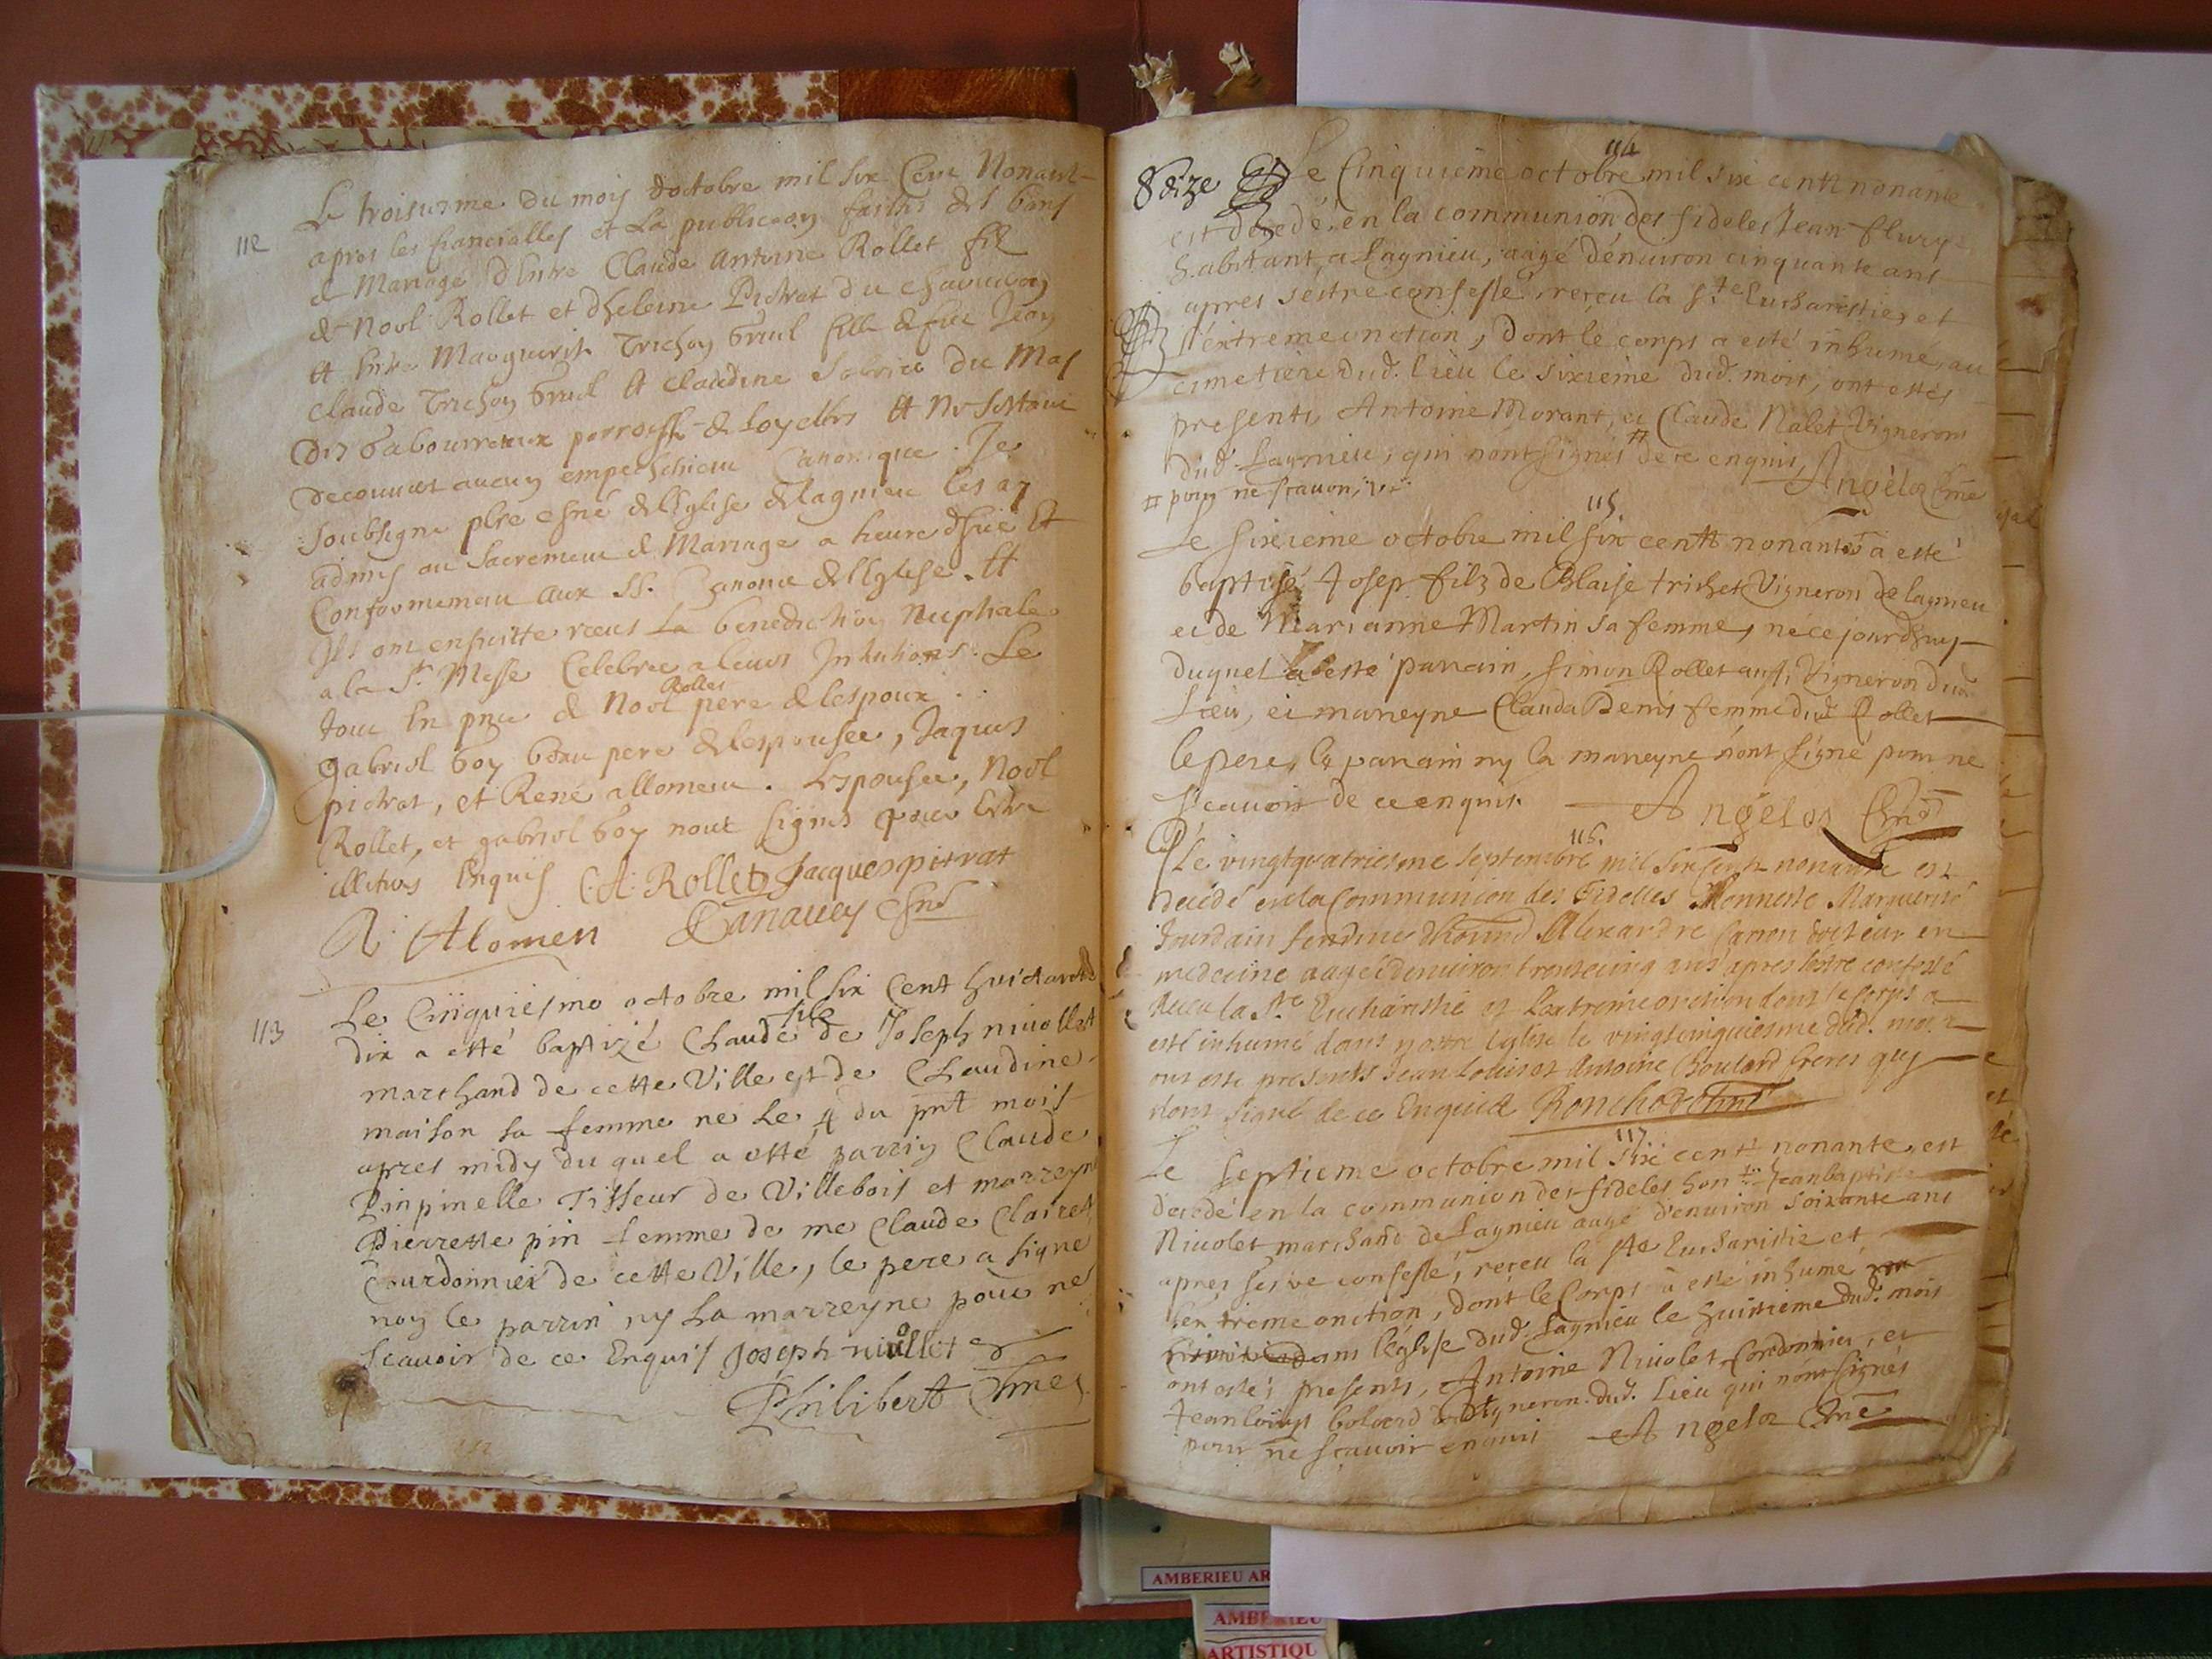 112
Le troisiesme du mois doctobre mil six Cent Nonant-
apres les fiancialles et La publicaon faictes des bans
de Mariage d'Entre Claude Antoine Rollet filz
de Noel Rollet et dheleine Pictrat du
et Entre Marguerite Trichon Bruil fille de feu Jean
Claude Trichon Bruil et Claudine du Mas
des babourreaux parroisse de Loyettes et Ne s'estant
decouvert aucun empeschieme Canonique. Je
soubsigne pbre chne de lEglise de lagnieu les ay
admis au Sacrement de Mariage a heure dhüe et
Conformement aux SS. Canons de lEglise. et
Ils ont ensuitte receus La benediction Nuptiale
a la Ste Messe Celebree a leurs Intentions. Le
tout En pnce de Noel Rollet pere de lespoux
gabriel boy beau pere de lespousee, Jaques
pictrat, et René allomen. Lespousee, Noel
Rollet, et gabriel boy nont signes pour Estre
illitres Enquis C. A. Rollet Jacques pitrat
R. Alomen Canavey Chne
113
Le Cinquiesme octobre mil six Cent huictante
dix a esté baptizé Claude filz de Joseph nivollet
marchand de cette Ville et de Claudine
maison sa femme ne Le 4 du pnt mois
apres midy du quel a esté parrin Claude
Pinpinelle Tisseur de Villebois et marreyne
Pierrette pin femme de me Claude Clairet
Courdonnier de cette Ville, le pere a signe
non le parrin ny La marreyne pour ne
scavoir de ce Enquis Joseph nivollet
Philibert Chne
Seize
114
Le Cinquiéme octobre mil six centz nonante
est decedé en la communion des fideles Jean flury
habitant a Lagnieu, aagé dénuiron cinquante ans
apres s'estre confessé, reçeu la Ste Eucharistie, et
l'extreme onction, dont le corps a esté inhumé, au
cimetiere dud. Lieu le sixieme dud. mois, ont estés
presents Antoine Morant, et Claude Nalet Vignerons
dud. Lagnieu, qui n'ont signés # de ce enquis, Angelot Chne
# pour ne scavoir
115
Le sixieme octobre mil six centz nonante a esté
baptisé Josep filz de Blaise trichet Vigneron de lagnieu
et de Marianne Martin sa femme, ne ce jourdhuy
duquel a esté parrain, Simon Rollet aussi Vigneron dud.
Lieu, et mareyne Clauda Denis femme dud. Rollet
le pere, le parrain ny la mareyne n'ont signé pour ne
scavoir de ce enquis. Angelot Chne
116.
Le vingtquatriesme septembre mil six centz nonante est
decédé en la Communion des fidelles honneste Marguerite
Jourdain femme Alexandre Carron docteur en
medecine aagée denuiron trentecinq ans apres sestre confessé
receu la Ste Eucharistie et Lextreme onction dont le corps a
esté inhumé dans nostre Eglise le vingtcinquiesme dud. mois
ont esté presents Jean Louis et Antoine Boulard freres quy
nont signé de ce Enquis Ronchod Chne
117
Le septieme octobre mil six centz nonante, est
decedé en la communion des fideles hon.te Jean baptiste
Nivolet marchand de Lagnieu aagé d'enuiron soixante ans
apres sestre confessé, reçeu la Ste Eucharistie et
l'extreme onction, dont le Corps a esté inhumé
dans l'église dud. Lagnieu le huitieme dud. mois
ont estés presents, Antoine Nivolet Cordonnier, et
Jean Louys bolard Vigneron dud. Lieu qui n'ont signés
pour ne scavoir enquis Angelot Chne
AMBERIEU AR
AMBERIEU
ARTISTIQU